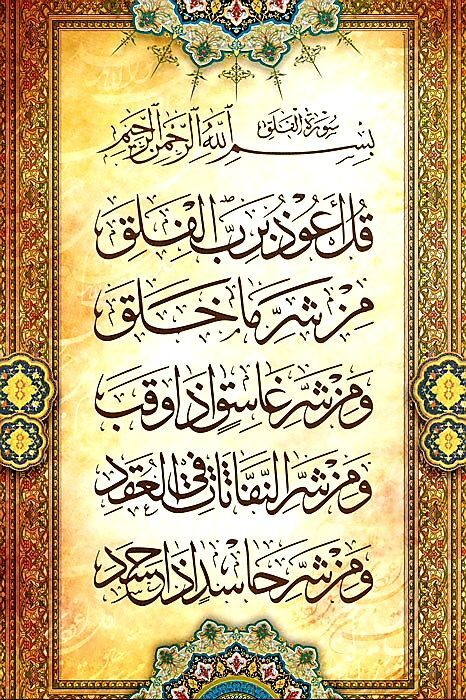 سُورَةُ الفَلَق
بِسْمِ ٱللَّهِ ٱلرَّحْمَنِ ٱلرَّحِيمِ
قُلْ أَعُوذُ بِرَبِّ الْفَلَقِ
مِنْ شَرِّ مَا خَلَقَ
وَمِنْ شَرِّ غَاسِقٍ إِذَا وَقَبَ
وَمِنْ شَرِّ النَّفَّاثَاتِ فِي الْعُقَدِ
وَمِنْ شَرِّ حَاسِدٍ إِذَا حَسَدَ